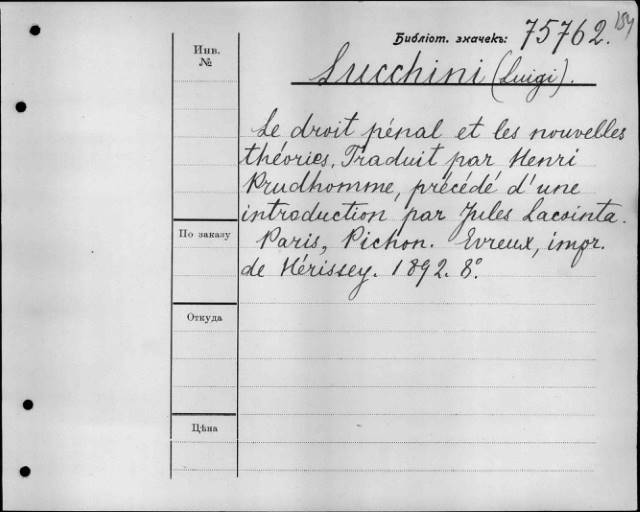 Библіот. значекъ: 75762.
Инв.
№
Lucchini (Luigi).
Le droit pénal et les nouvelles
théories. Traduit par Henri
Prudhomme, précédé d'une
introduction par Jules Lacointa.
Paris, Pichon. Evreux, impr.
de Hérissey. 1892. 8º.
По заказу
Откуда
Цѣна